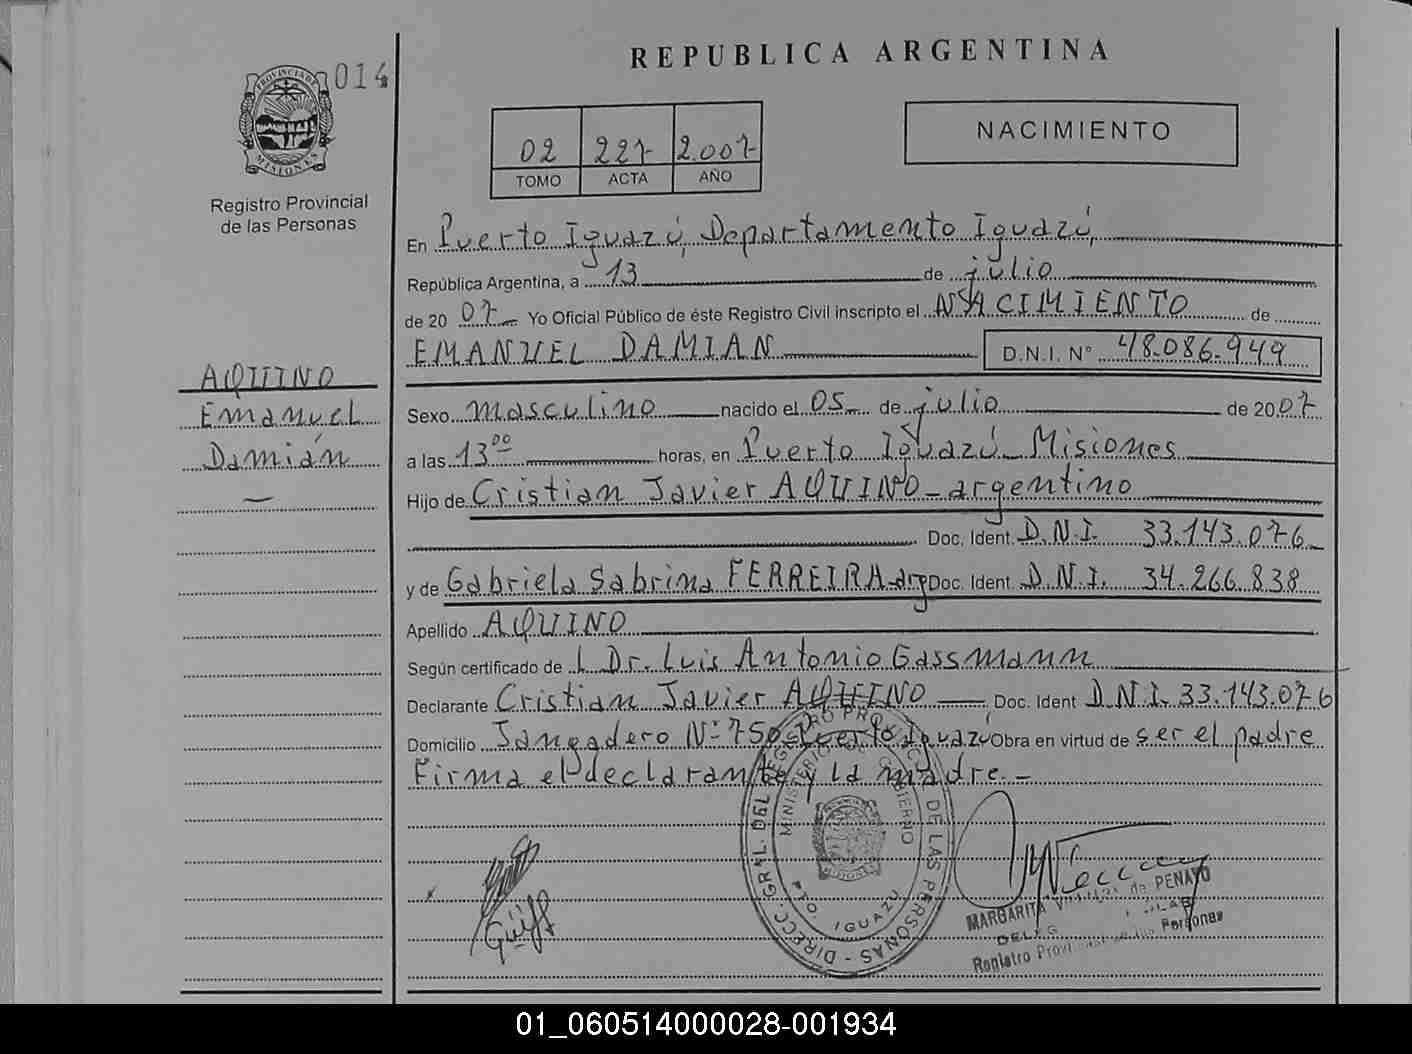 REPUBLICA ARGENTINA
014
PROVINCIA DE MISIONES
Registro Provincial
de las Personas
02 227- 2.007-
TOMO ACTA AÑO
NACIMIENTO
En Puerto Iguazú, Departamento Iguazú,
República Argentina, a 13 de julio
de 20 07 Yo Oficial Público de éste Registro Civil inscripto el NACIMIENTO de
EMANUEL DAMIAN D.N.I. Nº 48.086.949
AQUINO
Emanuel
Damián
Sexo masculino nacido el 05 de julio de 2007
a las 13 00 horas, en Puerto Iguazú - Misiones
Hijo de Cristian Javier AQUINO - argentino
Doc. Ident. D.N.I. 33.143.076
y de Gabriela Sabrina FERREIRA - arg Doc. Ident. D.N.I. 34.266.838
Apellido AQUINO
Según certificado de l Dr. Luis Antonio Gassmann
Declarante Cristian Javier AQUINO Doc. Ident D.N.I. 33.143.076
Domicilio Jangadero Nº 750 - Puerto Iguazú Obra en virtud de ser el padre
Firma el declarante y la madre. -
DIRECC. GRAL. DEL REGISTRO PROVINCIAL DE LAS PERSONAS
MINISTERIO DE GOBIERNO
PTO. IGUAZU
MARGARITA de PENAYO
Registro de las Personas
01_060514000028-001934